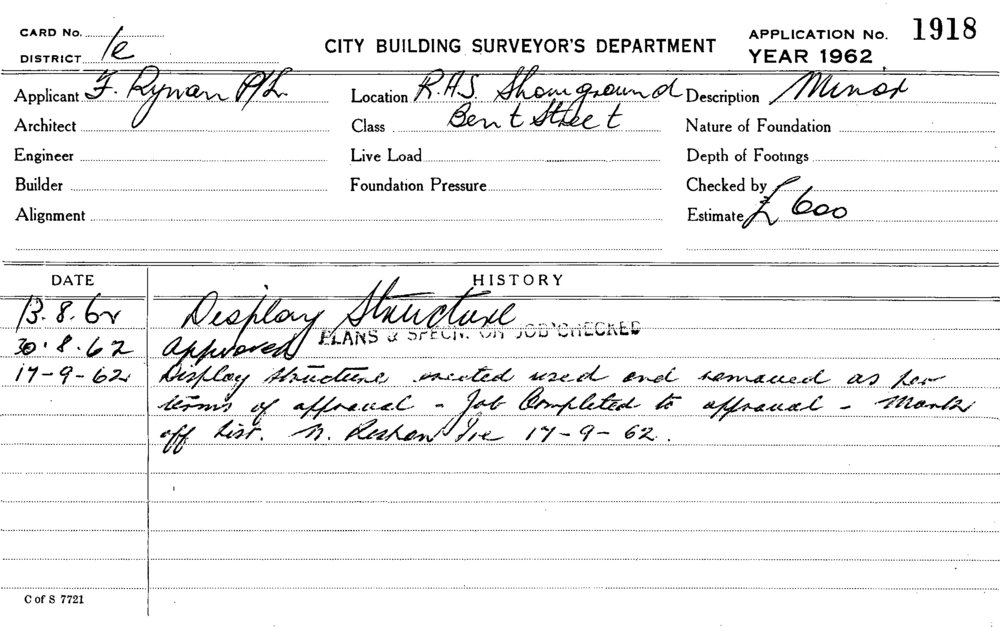 CARD No.
DISTRICT 1e
CITY BUILDING SURVEYOR'S DEPARTMENT
APPLICATION No. 1918
YEAR 1962
Applicant F. Rywan P/L. Location R.A.S. Showground Description Minor
Architect Class Bent Street Nature of Foundation
Engineer Live Load Depth of Footings
Builder Foundation Pressure Checked by
Alignment Estimate £600
DATE HISTORY
13.8.62 Display Structure
PLANS & SPECN. ON JOB CHECKED
30.8.62 Approved
17-9-62 Display structure erected used and removed as per
terms of approval - Job Completed to approval - Mark
off list. N. 17-9-62.
C of S 7721